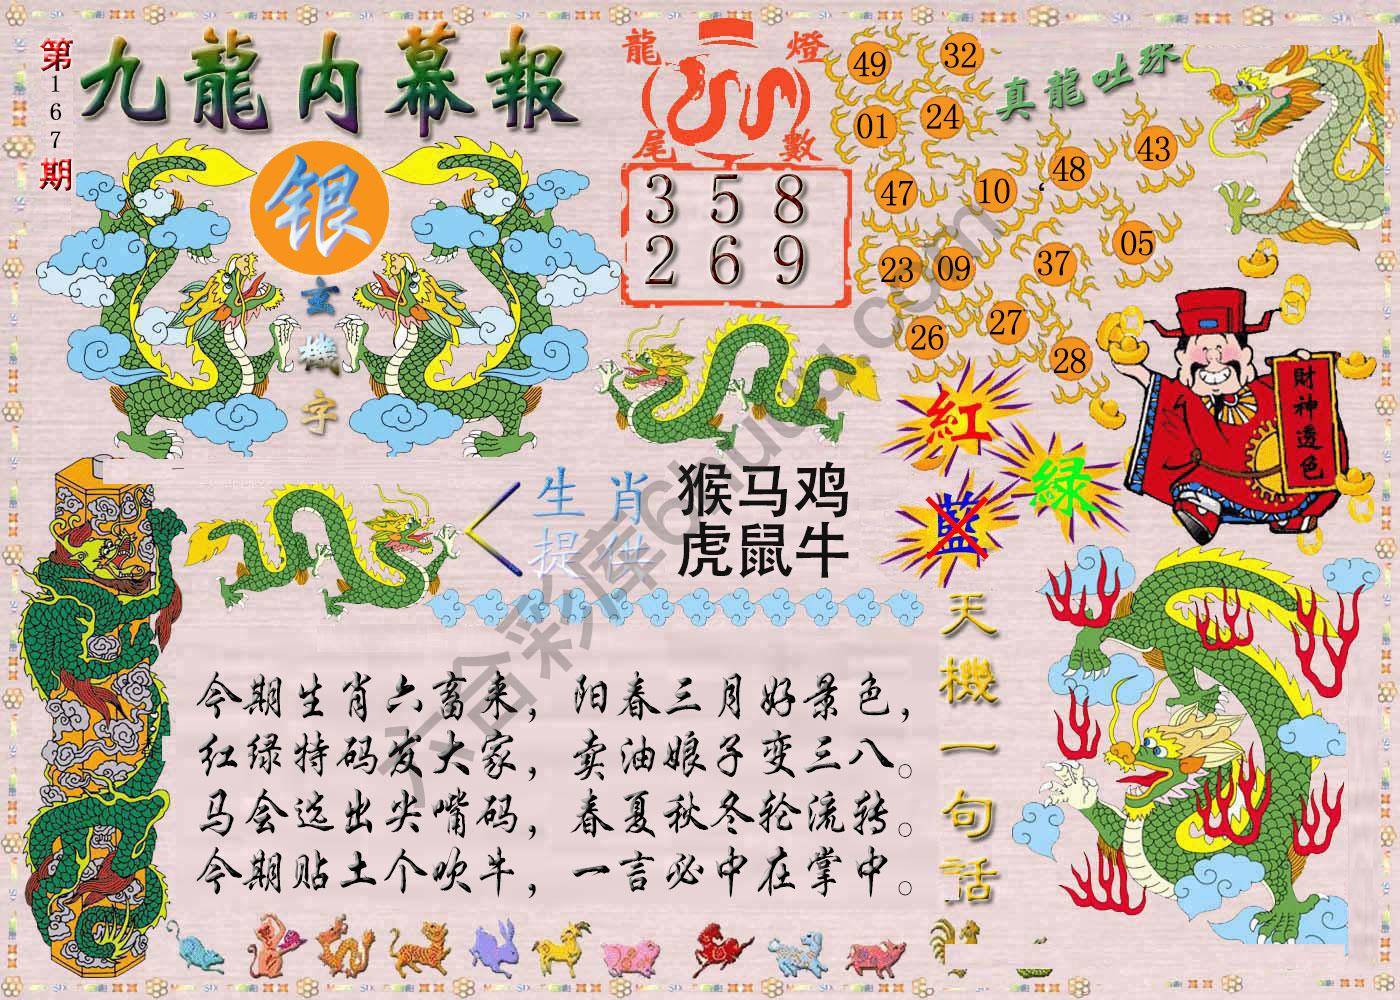 第167期
九龍内幕報
银
玄機字
龍燈
尾數
3 5 8
2 6 9
真龍吐珠
49 32
01 24
47 10 48 43
23 09 37 05
26 27 28
財神透色
紅
绿
藍
生肖提供
猴马鸡
虎鼠牛
天機一句话
今期生肖六畜来，阳春三月好景色，
红绿特码发大家，卖油娘子变三八。
马会选出尖嘴码，春夏秋冬轮流转。
今期贴土个吹牛，一言必中在掌中。
六合彩库6huuu.com